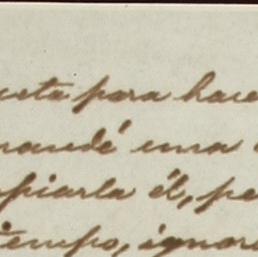 para hace
mandé una
piarla él, pe
tiempo, ignor